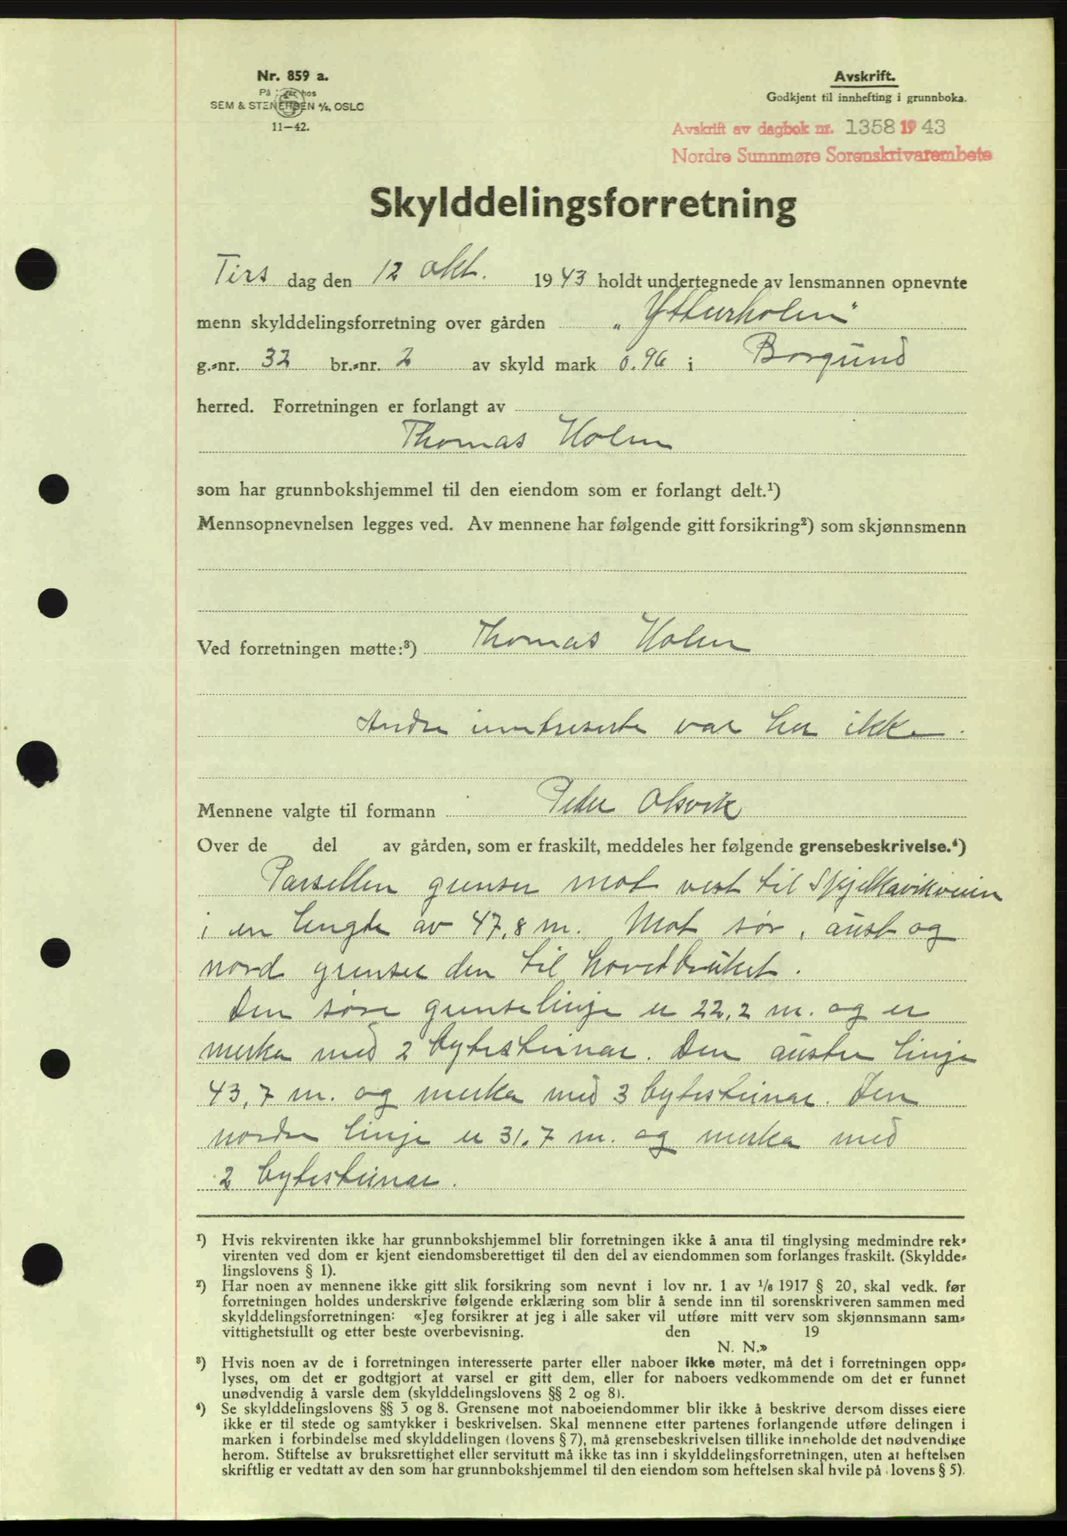 Nr. 859 a.
På lager hos
SEM & STENERSEN A/S, OSLO
11—42.
Avskrift.
Godkjent til innhefting i grunnboka.
Avskrift av dagbok nr. 1358 1943
Nordre Sunnmøre Sorenskrivarembete
Skylddelingsforretning
Tirs dag den 12 okt. 1943 holdt undertegnede av lensmannen opnevnte
menn skylddelingsforretning over gården „Ytterholm"
g.-nr. 32 br.-nr. 2 av skyld mark 0.96 i Borgund
herred. Forretningen er forlangt av
Thomas Holm
som har grunnbokshjemmel til den eiendom som er forlangt delt.¹)
Mennsopnevnelsen legges ved. Av mennene har følgende gitt forsikring²) som skjønnsmenn
Ved forretningen møtte:³) Thomas Holm
Andre interesserte var her ikke.
Mennene valgte til formann Peder Olsvik
Over de del av gården, som er fraskilt, meddeles her følgende grensebeskrivelse.⁴)
Parsellen grenser mot vest til Spjelkavikveien
i en lengde av 47,8 m. Mot sør, aust og
nord grenser den til hovedbruket.
Den søre grenselinje er 22,2 m. og er
merka med 2 bytesteinar. Den austre linje
43,7 m. og merka med 3 bytesteinar. Den
nordre linje er 31.7 m. og merka med
2 bytesteinar.
¹) Hvis rekvirenten ikke har grunnbokshjemmel blir forretningen ikke å anta til tinglysing medmindre rek-
virenten ved dom er kjent eiendomsberettiget til den del av eiendommen som forlanges fraskilt. (Skyldde-
lingslovens § 1).
²) Har noen av mennene ikke gitt slik forsikring som nevnt i lov nr. 1 av ¹/₆ 1917 § 20, skal vedk. før
forretningen holdes underskrive følgende erklæring som blir å sende inn til sorenskriveren sammen med
skylddelingsforretningen: «Jeg forsikrer at jeg i alle saker vil utføre mitt verv som skjønnsmann sam-
vittighetstullt og etter beste overbevisning. den 19
N. N.»
³) Hvis noen av de i forretningen interesserte parter eller naboer ikke møter, må det i forretningen opp-
lyses, om det er godtgjort at varsel er gitt dem, eller for naboers vedkommende om det er funnet
unødvendig å varsle dem (skylddelingslovens §§ 2 og 8).
⁴) Se skylddelingslovens §§ 3 og 8. Grensene mot naboeiendommer blir ikke å beskrive dersom disses eiere
ikke er til stede og samtykker i beskrivelsen. Skal mennene etter partenes forlangende utføre delingen i
marken i forbindelse med skylddelingen (lovens § 7), må grensebeskrivelsen tillike inneholde det nødvendige
herom. Stiftelse av bruksrettighet eller servitutt må ikke tas inn i skylddelingsforretningen, uten at heftelsen
skriftlig er vedtatt av den som har grunnbokshjemmel til den eiendom som heftelsen skal hvile på (lovens § 5).